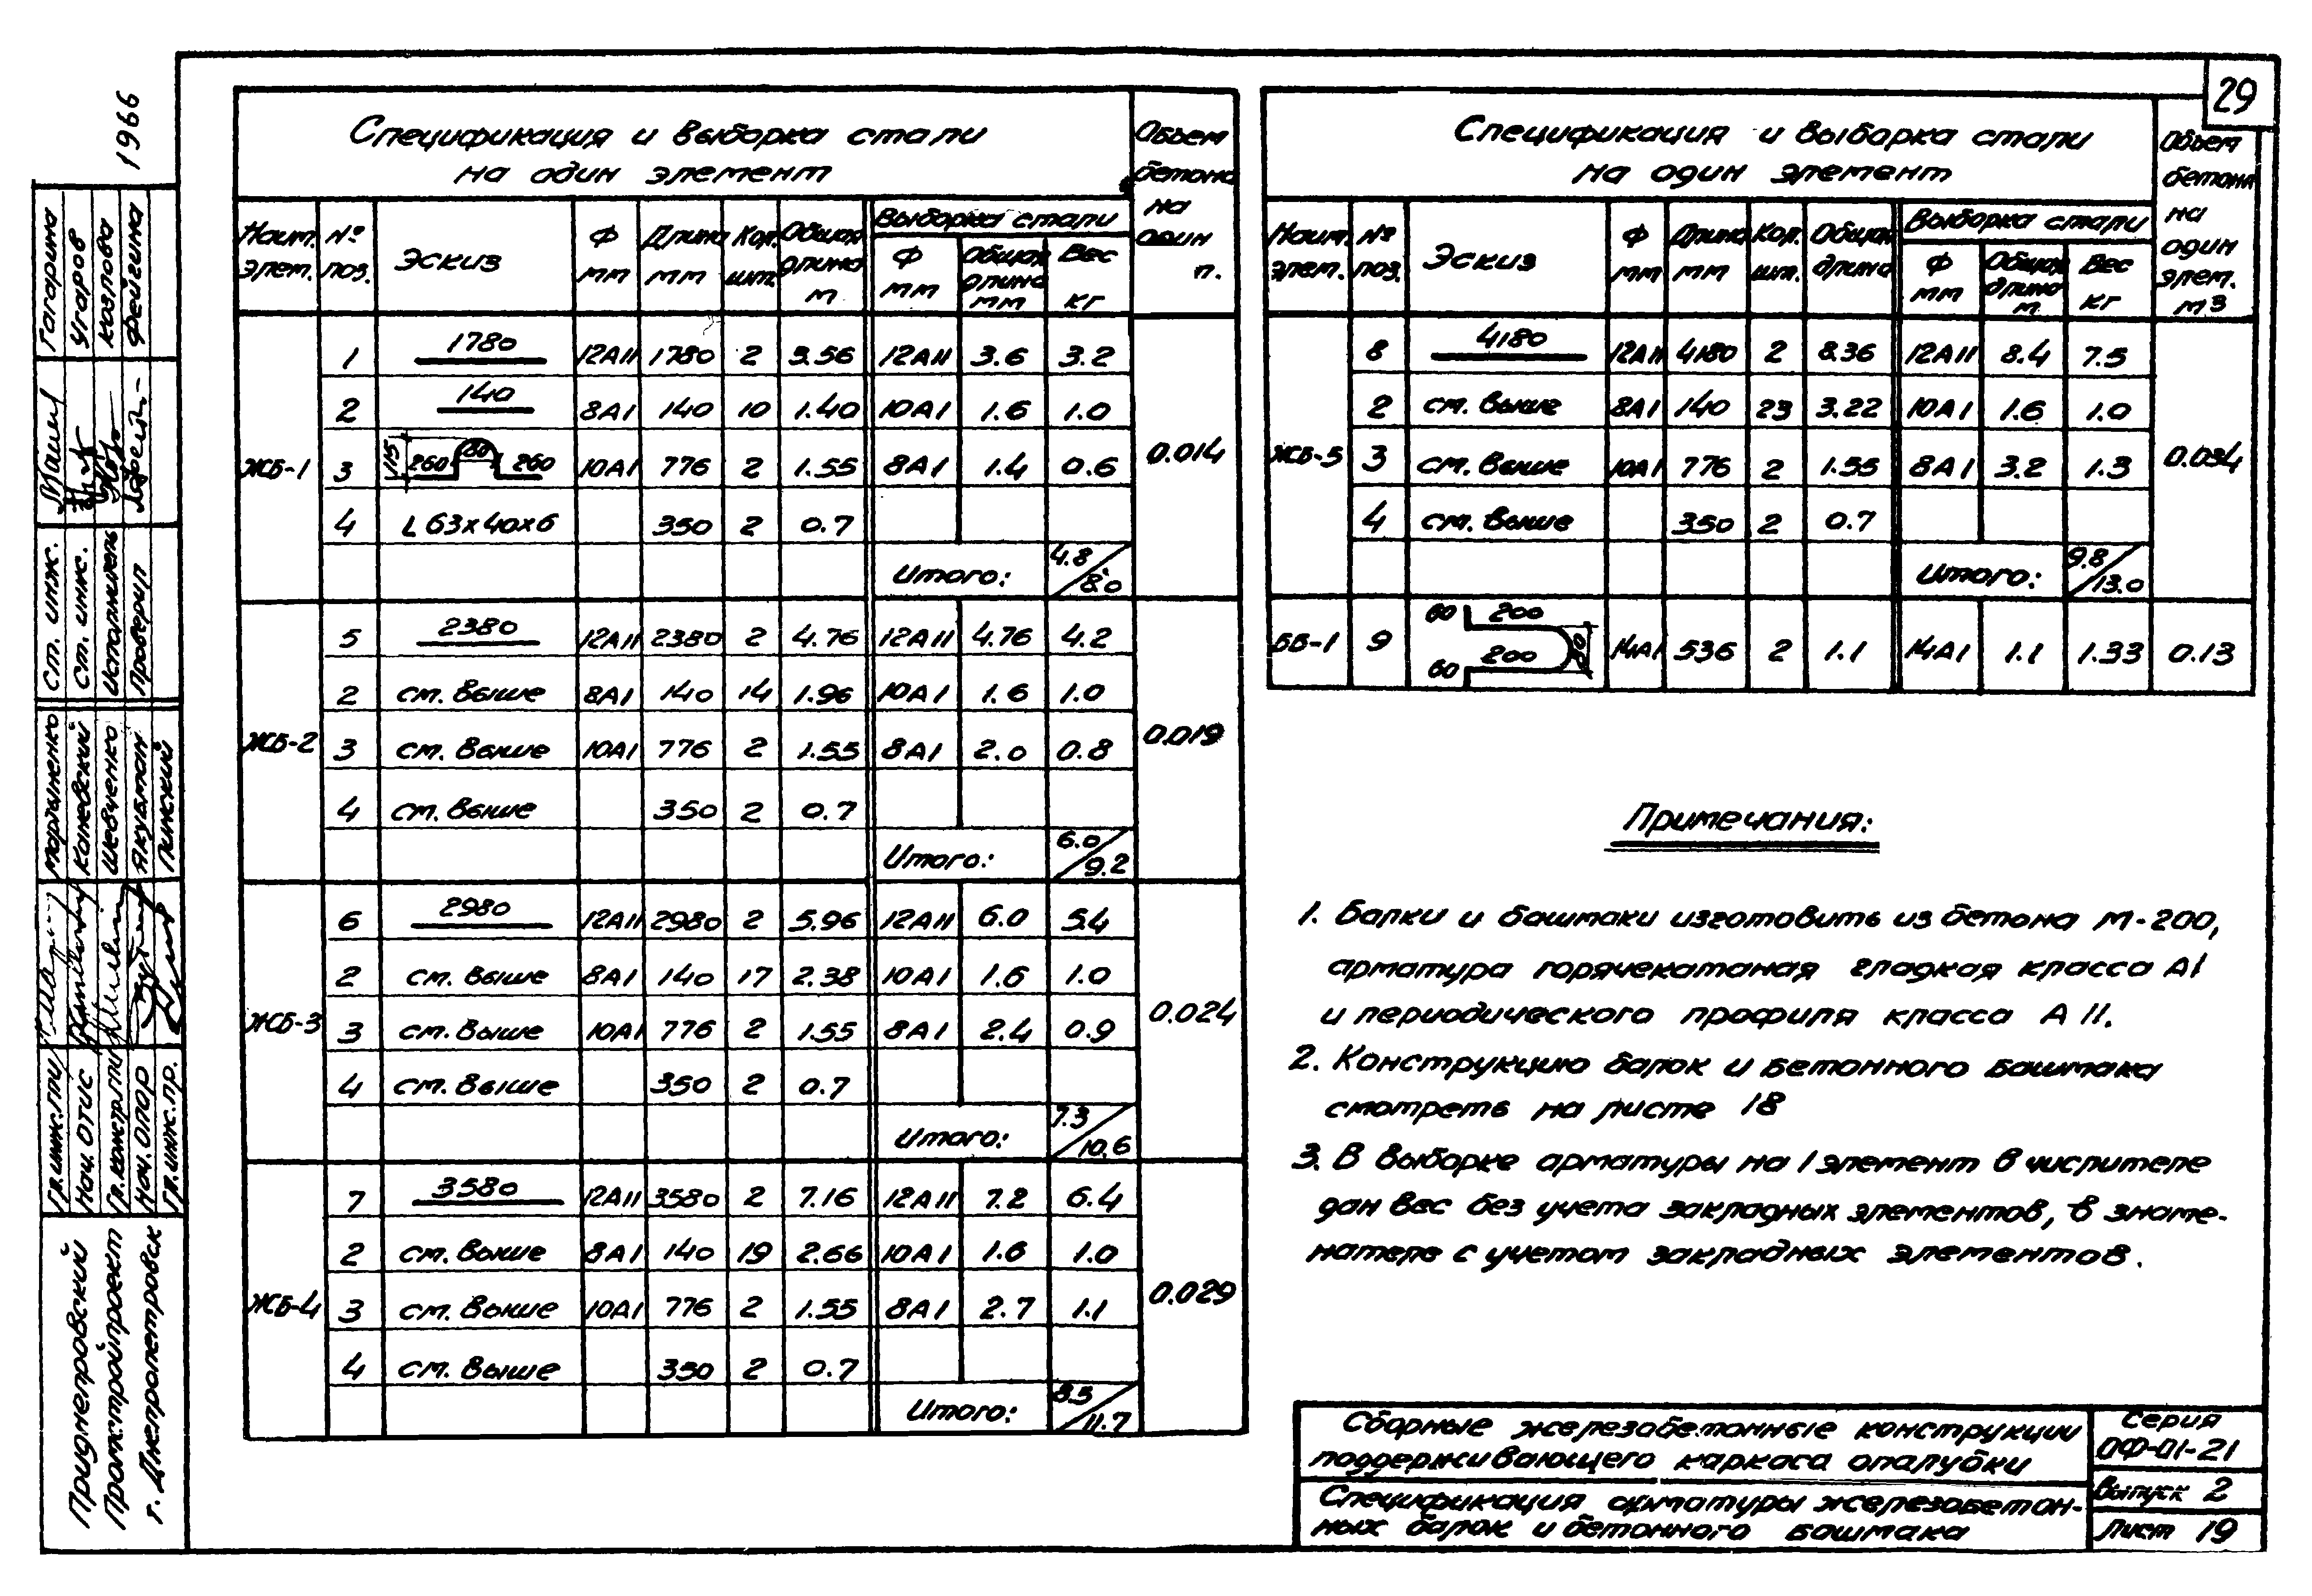 29
1966
Спецификация и выборка стали
на один элемент
Объем
бетона
на
один
п.
Наим. элем. № поз. Эскиз Ф мм Длина мм Кол. шт. Общая длина м Выборка стали Ф мм Общая длина мм Вес кг
ЖБ-1
1 1780 12АII 1780 2 3.56 12АII 3.6 3.2
2 140 8АI 140 10 1.40 10АI 1.6 1.0
3 115 260 80 260 10АI 776 2 1.55 8АI 1.4 0.6
0.014
4 L 63х40х6 350 2 0.7
Итого: 4.8/8.0
ЖБ-2
5 2380 12АII 2380 2 4.76 12АII 4.76 4.2
2 см. выше 8АI 140 14 1.96 10АI 1.6 1.0
3 см. выше 10АI 776 2 1.55 8АI 2.0 0.8
0.019
4 см. выше 350 2 0.7
Итого: 6.0/9.2
ЖБ-3
6 2980 12АII 2980 2 5.96 12АII 6.0 5.4
2 см. выше 8АI 140 17 2.38 10АI 1.6 1.0
3 см. выше 10АI 776 2 1.55 8АI 2.4 0.9
0.024
4 см. выше 350 2 0.7
Итого: 7.3/10.6
ЖБ-4
7 3580 12АII 3580 2 7.16 12АII 7.2 6.4
2 см. выше 8АI 140 19 2.66 10АI 1.6 1.0
3 см. выше 10АI 776 2 1.55 8АI 2.7 1.1
0.029
4 см. выше 350 2 0.7
Итого: 8.5/11.7
Спецификация и выборка стали
на один элемент
Объем
бетона
на
один
элем.
м3
Наим. элем. № поз. Эскиз Ф мм Длина мм Кол. шт. Общая длина Выборка стали Ф мм Общая длина м Вес кг
ЖБ-5
8 4180 12АII 4180 2 8.36 12АII 8.4 7.5
2 см. выше 8АI 140 23 3.22 10АI 1.6 1.0
3 см. выше 10АI 776 2 1.55 8АI 3.2 1.3
0.034
4 см. выше 350 2 0.7
Итого: 9.8/13.0
ББ-1 9 60 200 200 60 80 14АI 536 2 1.1 14АI 1.1 1.33 0.13
Примечания:
1. Балки и башмаки изготовить из бетона М-200,
арматура горячекатаная гладкая класса АI
и периодического профиля класса А II.
2. Конструкцию балок и бетонного башмака
смотреть на листе 18
3. В выборке арматуры на 1 элемент в числителе
дан вес без учета закладных элементов, в знаме-
нателе с учетом закладных элементов.
Сборные железобетонные конструкции
поддерживающего каркаса опалубки
Спецификация арматуры железобетон-
ных балок и бетонного башмака
Серия
ОФ-01-21
Выпуск 2
Лист 19
Ст. инж. Гагарина
Ст. инж. Угаров
Исполнитель Козлова
Проверил Фейгина
Гл. инж. ПИ Мартыненко
Нач. ОТИС Каневский
Гл. констр. ПИ Шевченко
Нач. ОПОР Якубман
Гл. инж. пр. Пинский
Приднепровский
Промстройпроект
г. Днепропетровск